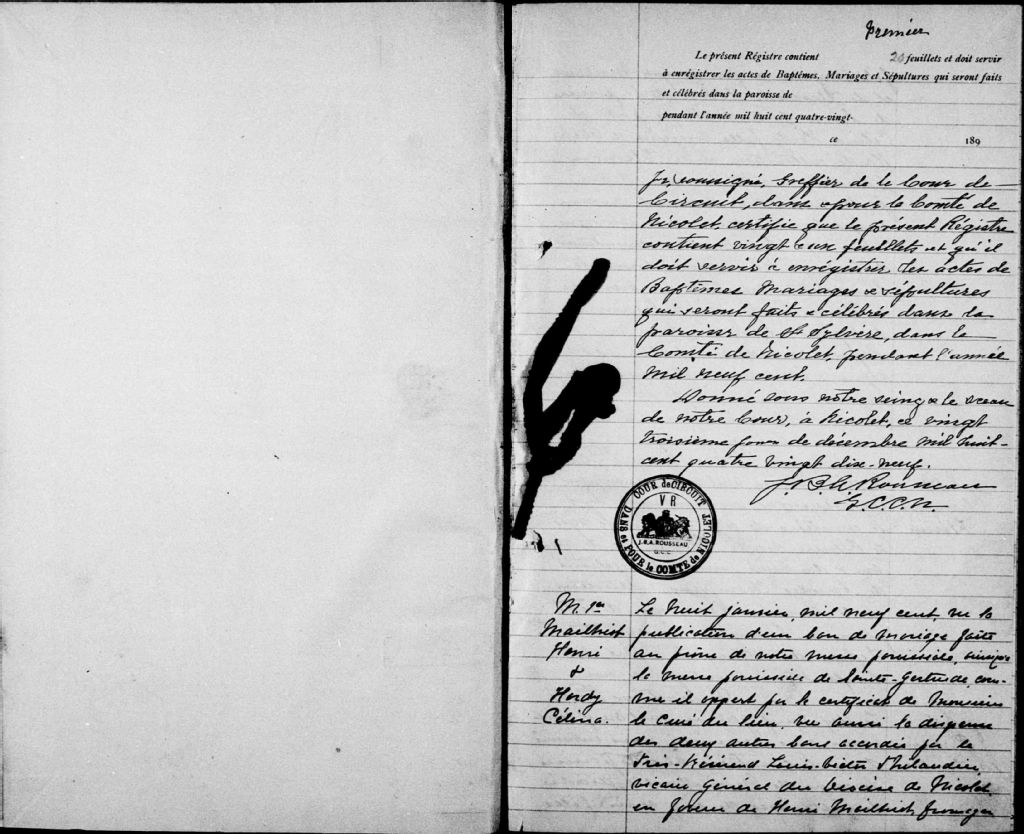 Premier
Le présent Régistre contient 20 feuillets et doit servir
à enrégistrer les actes de Baptêmes, Mariages et Sépultures qui seront faits
et célébrés dans la paroisse de
pendant l'année mil huit cent quatre-vingt-
ce 189
Je, soussigné, Greffier de la Cour de
Circuit, dans & pour le Comté de
Nicolet, certifie que le présent Régistre
contient vingt & un feuillets et qu'il
doit servir à enrégistrer les actes de
Baptêmes Mariages & sépultures
qui seront faits & célébrés dans la
paroisse de St Sylvère, dans le
Comté de Nicolet, pendant l'année
Mil neuf cent.
Donné sous notre seing & le sceau
de notre Cour, à Nicolet, ce vingt
troisième jour de décembre mil huit-
cent quatre vingt dix-neuf.
J. B. A. Rousseau
G.C.C.N.
COUR de CIRCUIT
DANS et POUR le COMTÉ de NICOLET
V R
J.B.A. ROUSSEAU
G.C.C.
M. 1er
Mailhiot
Henri
&
Hardy
Célina.
Le huit janvier, mil neuf cent, vu la
publication d'un ban de mariage faite
au prône de notre messe paroissiale,
la messe paroissiale de Sainte-Gertrude, com-
me il appert par le certificat de Monsieur
le curé du lieu, vu aussi la dispense
des deux autres bans accordée par le
Très-Révérend Louis-Victor Thibaudier,
vicaire Général du diocèse de Nicolet
en faveur de Henri Mailhiot fromager